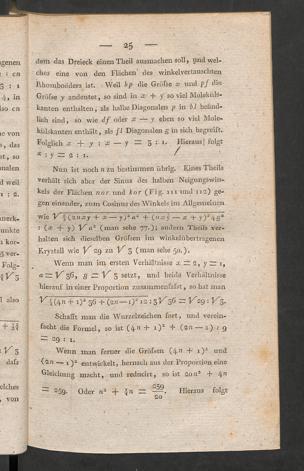 — 25 —
dem das Dreieck einen Theil ausmachen soll, und wel-
ches eine von den Flächen des winkelvertauschten
Rhomboëders ist. Weil kp die Größe x und pf die
Größe y andeutet, so sind in x + y so viel Molekuls-
kanten enthalten, als halbe Diagonalen p in bl befind-
lich sind, so wie df oder x — y eben so viel Mole-
külskanten enthält, als fl Diagonalen g in sich begreift.
Folglich x + y : x — y = 5 : 1. Hieraus folgt
x : y = 2 : 1.
Nun ist noch n zu bestimmen übrig. Eines Theils
verhält sich aber der Sinus des halben Neigungswin-
kels der Flächen nor und kor (Fig. 111 und 112) ge-
gen einander, zum Cosinus des Winkels im Allgemeinen
(man sehe 77.); andern Theils ver-
halten sich dieselben Größen im winkelübertragenen
Krystall wie √29 zu √5 (man sehe 50.).
Wenn man im ersten Verhältnisse x = 2, y = 1,
a = √36, g = √5 setzt, und beide Verhältnisse
hierauf in einer Proportion zusammenfasst, so hat man
√(4n + 1)² 36 + (2n—1)² 12 : 3√36 = √29 : √5.
Schafft man die Wurzelzeichen fort, und verein-
facht die Formel, so ist (4n + 1)² + (2n — 1) : 9
= 29 : 1.
Wenn man ferner die Größen (4n + 1)² und
(2n — 1)² entwickelt, hernach aus der Proportion eine
Gleichung macht, und reducirt, so ist 20n² + 4n
= 259. Oder n² + ⅕n = 259/20. Hieraus folgt